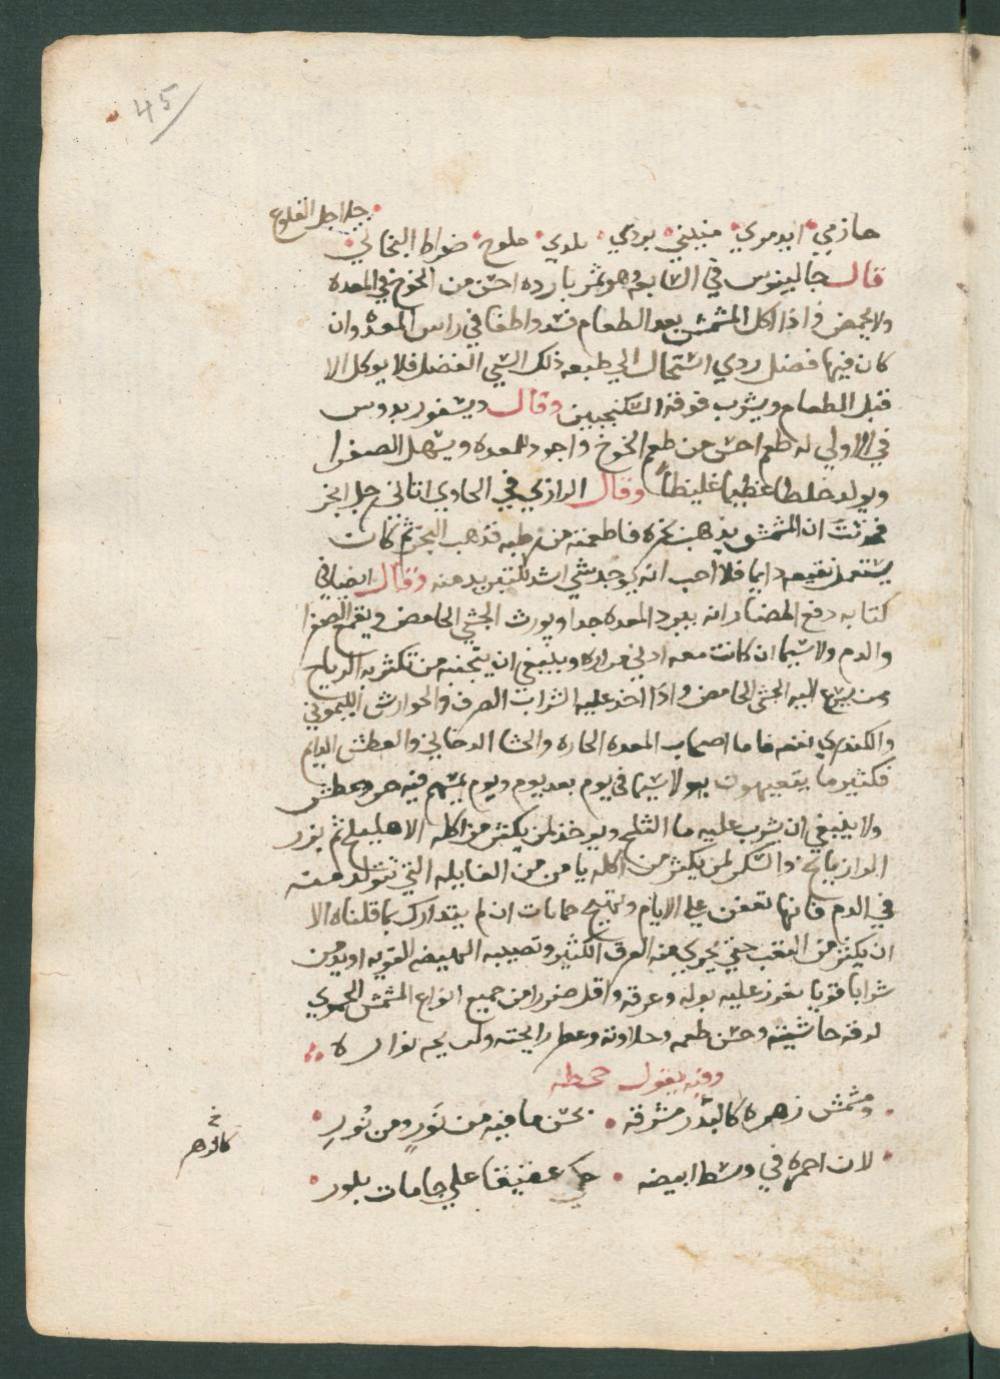 45
جلاجل القلوع
حازمي ايدمري منيني بردي بلدي ملوح ضراط البخاتي
قال جالينوس في السابعه وهو ثمر بارده احسن من الخوخ في المعده
ولا يحمض واذا اكل المشمش بعد الطعام فسد وطفا في راس المعده وان
كان فيها فضل ردي استحال الي طبعه ذلك الشي الفضل فلا يوكل الا
قبل الطعام ويشرب فوقه السكنجبين وقال ديسقوريدوس
في الاولي له طعم احسن من طعم الخوخ واجود للمعده ويسهل الصفرا
ويولد خلطا عظيما غليظا وقال الرازي في الحاوي اتاني رجل ابخر
فحدثت ان المشمش يذهب بخره فاطعمته من رطبه فذهب البخر ثم كان
يستعمل نقيعه دايما فلا احب انه يوجد شي اشد تبريد منه وقال ايضا في
كتابه دفع المضار انه يبرد المعده جدا ويورث الجشي الحامض ويقمع الصفرا
والدم ولا سيما ان كانت معه ادني مراره وينبغي ان يتجنبه من تكثر به الرياح
ومن يسرع اليه الجشي الحامض واذا اخذ عليه الشراب الصرف والجوارش الليموني
والكندري نفعه فاما اصحاب المعده الحاره والجشا الدخاني والعطش الدايم
فكثير ما ينتفعون به ولا سيما في يوم بعد يوم ويوم يمسهم فيه حر وعطش
ولا ينبغي ان يشرب عليه ما الثلج ويوخذ لمن يكثر من اكله الاهليلج ثم بزر
الرازيانج والسكر لمن يكثر من اكله يامن من الغايله التي تتولد منه
في الدم فانها تعفن علي الايام وتهيج حمايات ان لم يتدارك بما قلناه الا
ان يكثر من التعب حتي يجري منه العرق الكثير وتصيبه الهيضه القويه او يدمن
شرابا قويا يغزر عليه بوله وعرقه واقل ضررا من جميع انواع المشمش الحموي
لدقه حاشيته وحسن طعمه وحلاوته وعطر رايحته
وفيه يقول جحظه
ومشمش زهره كالبدر مشرقه بحسن ما فيه من نَور ومن نُور
كالزهر خ
لان احمره في وسط ابيضه حكي عقيقا علي جامات بلور